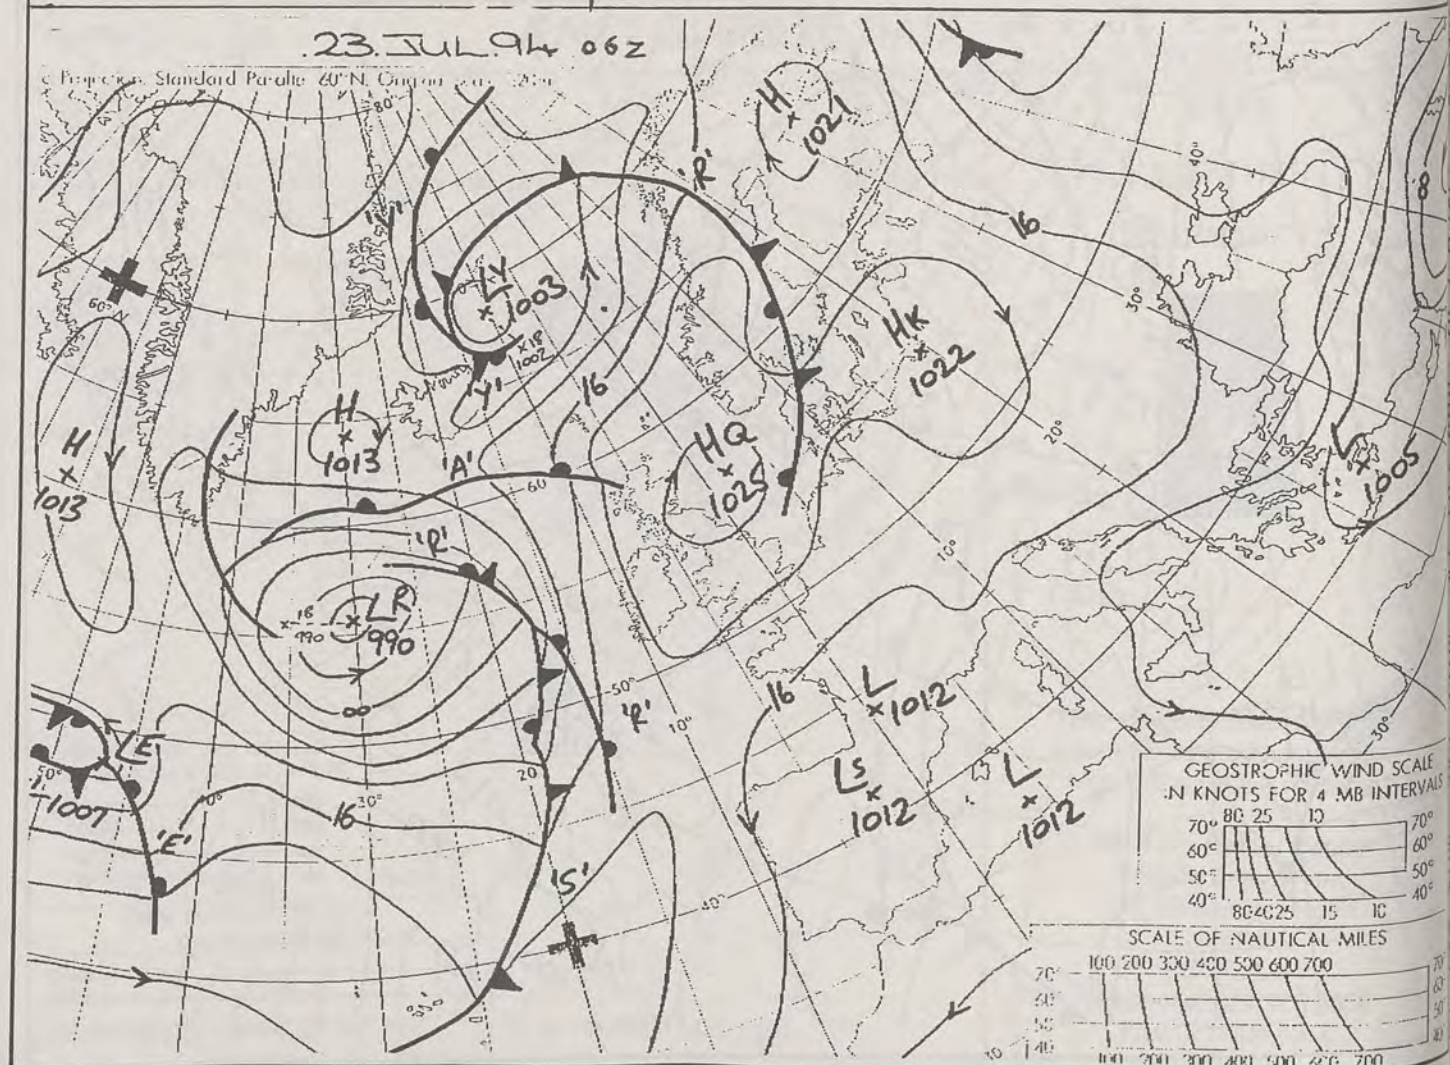 23.JUL.94 06Z
Projection, Standard 60°N.
80°
H
1021
'R'
40°
8
16
'Y'
LY
1003
60°N
×18
1002
'Y'
30°
HK
1022
16
H
1013
H
1013
'A'
HQ
1025
20°
L
1005
60
'R'
10°
18
990
LR
990
50°
'R'
10°
16
L
1012
LE
1007
50°
20°
30°
16
'E'
LS
1012
L
1012
30°
'S'
40°
GEOSTROPHIC WIND SCALE
IN KNOTS FOR 4 MB INTERVALS
80 25 10
70° 70°
60° 60°
50° 50°
40° 40°
80 40 25 15 10
SCALE OF NAUTICAL MILES
100 200 300 400 500 600 700
70°
60
50
40
100 200 300 400 500 600 700